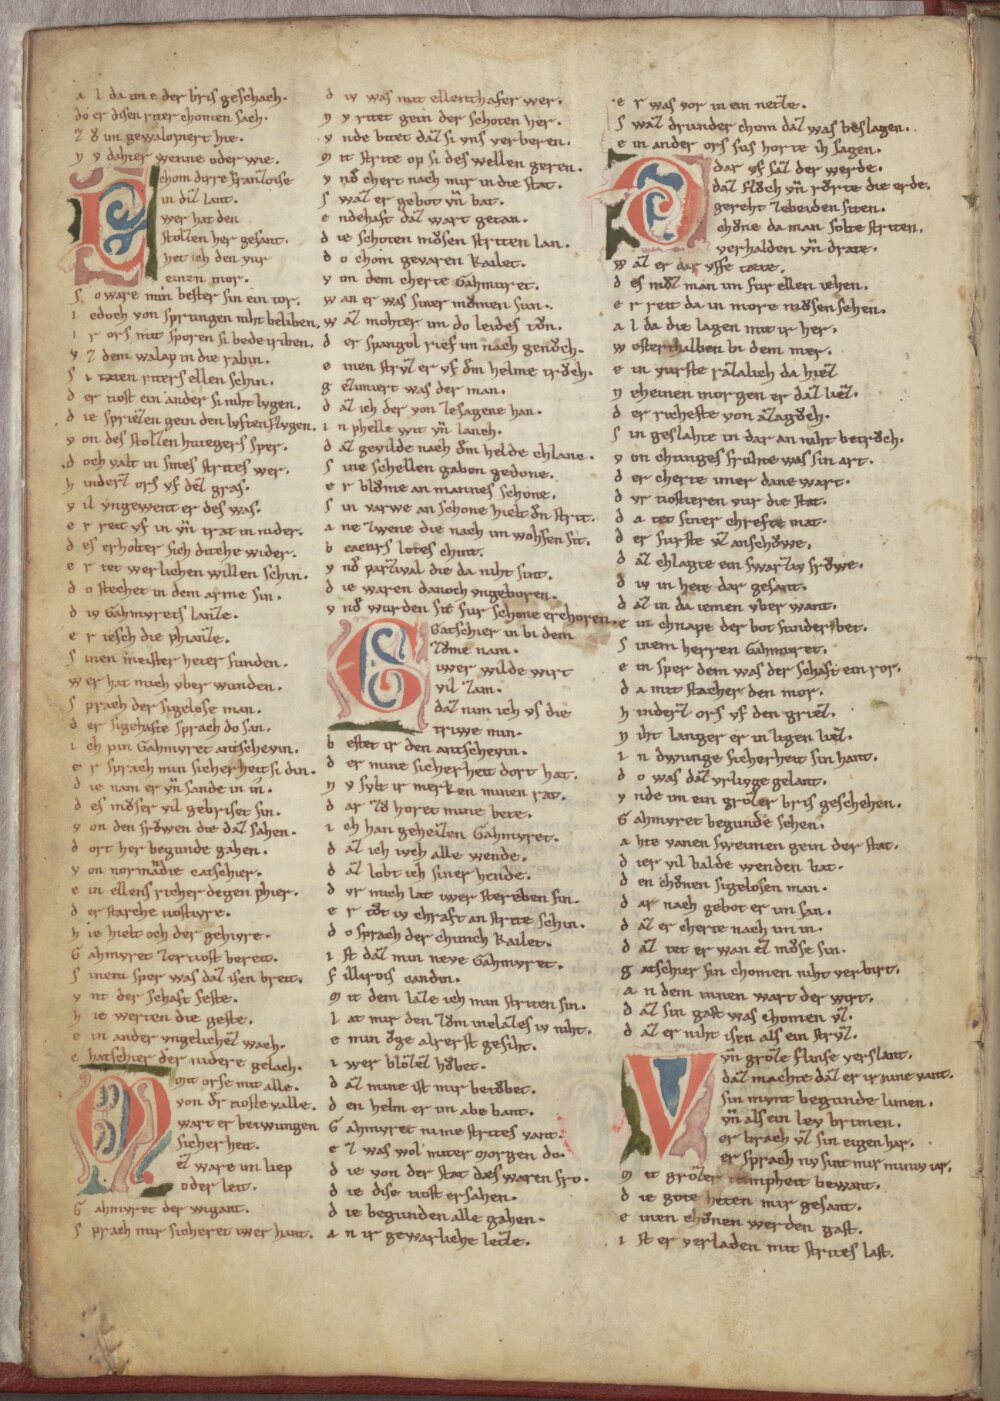 a l da im e der bris geschach.
do er disen riter chomen sach.
z ů im gewalopiert hie.
n v dahter wenne oder wie.
chom dirre franzoise
in diz lant.
wer hat den
stolzen her gesant.
het ich den vur
einen mor.
s o ware min bester sin ein tor.
i edoch von sprungen niht beliben.
i r ors mit sporen si bede triben.
v z dem walap in die rabin.
s i taten riters ellen schin.
d er tiost ein ander si niht lugen.
d ie sprizen gein den lyften flygen.
v on des stolzen hutegers sper.
d och valt in sines strites wer.
h inderz ors vf dez gras.
v il vngewent er des was.
e r reit vf in vn̄ trat in nider.
d es erholter sich ditche wider.
e r tet werlichen willen schin.
d o stechet in dem arme sin.
d iv Gahmyrets lanze.
e r iesch die phianze.
s inen meister heter funden.
w er hat mich vber wunden.
s prach der sigelose man.
d er sigehafte sprach do san.
i ch pin Gahmyret antschevin.
e r sprach min sicherheit si din.
d ie nam er vn̄ sande in in.
d es můser vil gebriset sin.
v on den frŏwen die daz sahen.
d ort her begunde gahen.
v on normādie catschier.
e in ellens richer degen phier.
d er starche tiostivre.
h ie hielt och der gehivre.
G ahmyret zer tiost bereit.
s inem sper was daz isen breit.
v nt der schaft feste.
h ie werten die geste.
e in ander vngelichez wach.
c hatschier der nidere gelach.
Mit orse mit alle.
von dˢ tioste valle.
wart er betwungen
sicherheit.
ez ware im liep
oder leit.
G ahmyret der wigant.
s prach mir sicheret iwer hant.
d iv was mit ellenthafter wer.
n v ritet gein der schoten her.
v nde bitet daz si vns verberen.
m it strite op si des wellen geren.
v nd chert nach mir in die stat.
s waz er gebot vn̄ bat.
e ndehaft daz wart getan.
d ie schoten můsen striten lan.
d o chom gevaren Kailet.
v on dem cherte Gahmuret.
w an er was siner můmen sun.
w az mohter im do leides tůn.
d er spangol rief im nach genůch.
e inen struz er vf dm̄ helme trůch.
g ezimiert was der man.
d az ich der von zesagene han.
i n phelle wit vn̄ lanch.
d az gevilde nach dm̄ helde chlanc.
s ine schellen gaben gedone.
e r blůme an mannes schone.
s in varwe an schone hielt dn̄ strit.
a ne zwene die nach im wohsen sit.
b eacurs lotes chint.
v nd parzival die da niht sint.
d ie waren danoch vngeboren.
v nd wurden sit fur schone erchoren.
Gatschier in bi dem
zŏme nam.
iwer wilde wirt
vil zam.
daz nim ich vf die
triwe min.
b estet ir den antschevin.
d er mine sicherheit dort hat.
n v sylt ir merken minen rat.
d ar zů horet mine bete.
i ch han geheizen Gahmyret.
d az ich iwch alle wende.
d az lobt ich siner hende.
d vr mich lat iwer streben sin.
e r tůt iv chraft an strite schin.
d o sprach der chunch Kailet.
i st daz min neve Gahmyret.
f illirois gandin.
m it dem laze ich min striten sin.
l at mir den zŏm inelazes iv niht.
e min ŏge alrerst gesiht.
i wer blozez hŏbet.
d az mine ist mir betŏbet.
d en helm er im abe bant.
G ahmyret nime strites vant.
e z was wol miter morgen do.
d ie von der stat daes waren fro.
d ie dise tiost ersahen.
d ie begunden alle gahen.
a n ir gewarliche letze.
e r was vor in ein netze.
s waz drunder chom daz was beslagen.
e in ander ors sus horte ih sagen.
dar vf saz der werde.
daz flŏch vn̄ růrte die erde.
gereht zebeiden siten.
chŏne da man solte striten.
verhalden vn̄ drate.
w az er dar vffe tæte.
d es můz man im fur ellen iehen.
e r reit da in more můsen sehen.
a l da die lagen mit ir her.
w esterthalben bi dem mer.
e in vurste razalich da hiez
n eheinen morgen er daz liez.
d er richeste von azagŏch.
s in geslahte in dar an niht betrŏch.
v on chunges fruhte was sin art.
d er cherte imer dane wart.
d vr tiostieren vur die stat.
d a tet siner chrefte mat.
d er furste vz anschŏwe.
d az chlagte ein swarziv frŏwe.
d iv in hete dar gesant.
d az in da iemen vber want.
e in chnape der bot sunder bet.
s inem herren Gahmyret.
e in sper dem was der schaft ein ror.
d a mit stacher den mor.
h inderz ors vf den griez.
n iht langer er in ligen liez.
i n dwunge sicherheit sin hant.
d o was daz vrlivge gelant.
v nde im ein grozer bris geschehen.
G ahmyret begunde sehen.
a hte vanen sweimen gein der stat.
d ier vil balde wenden bat.
d en chŏnen sigelosen man.
d ar nach gebot er im san.
d az er cherte nach im in.
d az tet er wan ez mŏse sin.
g atschier sin chomen niht verbirt.
a n dem innen wart der wirt.
d az sin gast was chomen vz.
d az er niht isen als ein struz.
Vn̄ groze flinse verslant.
daz machte daz er ir nine vant.
sin mynt begunde limen.
vn̄ als ein lev brimen.
er brach vz sin eigen har.
er sprach nv sint mir miniv iar.
m it grozer tumpheit bewant.
d ie gote heten mir gesant.
e inen chŏnen werden gast.
i st er verladen mit strites last.